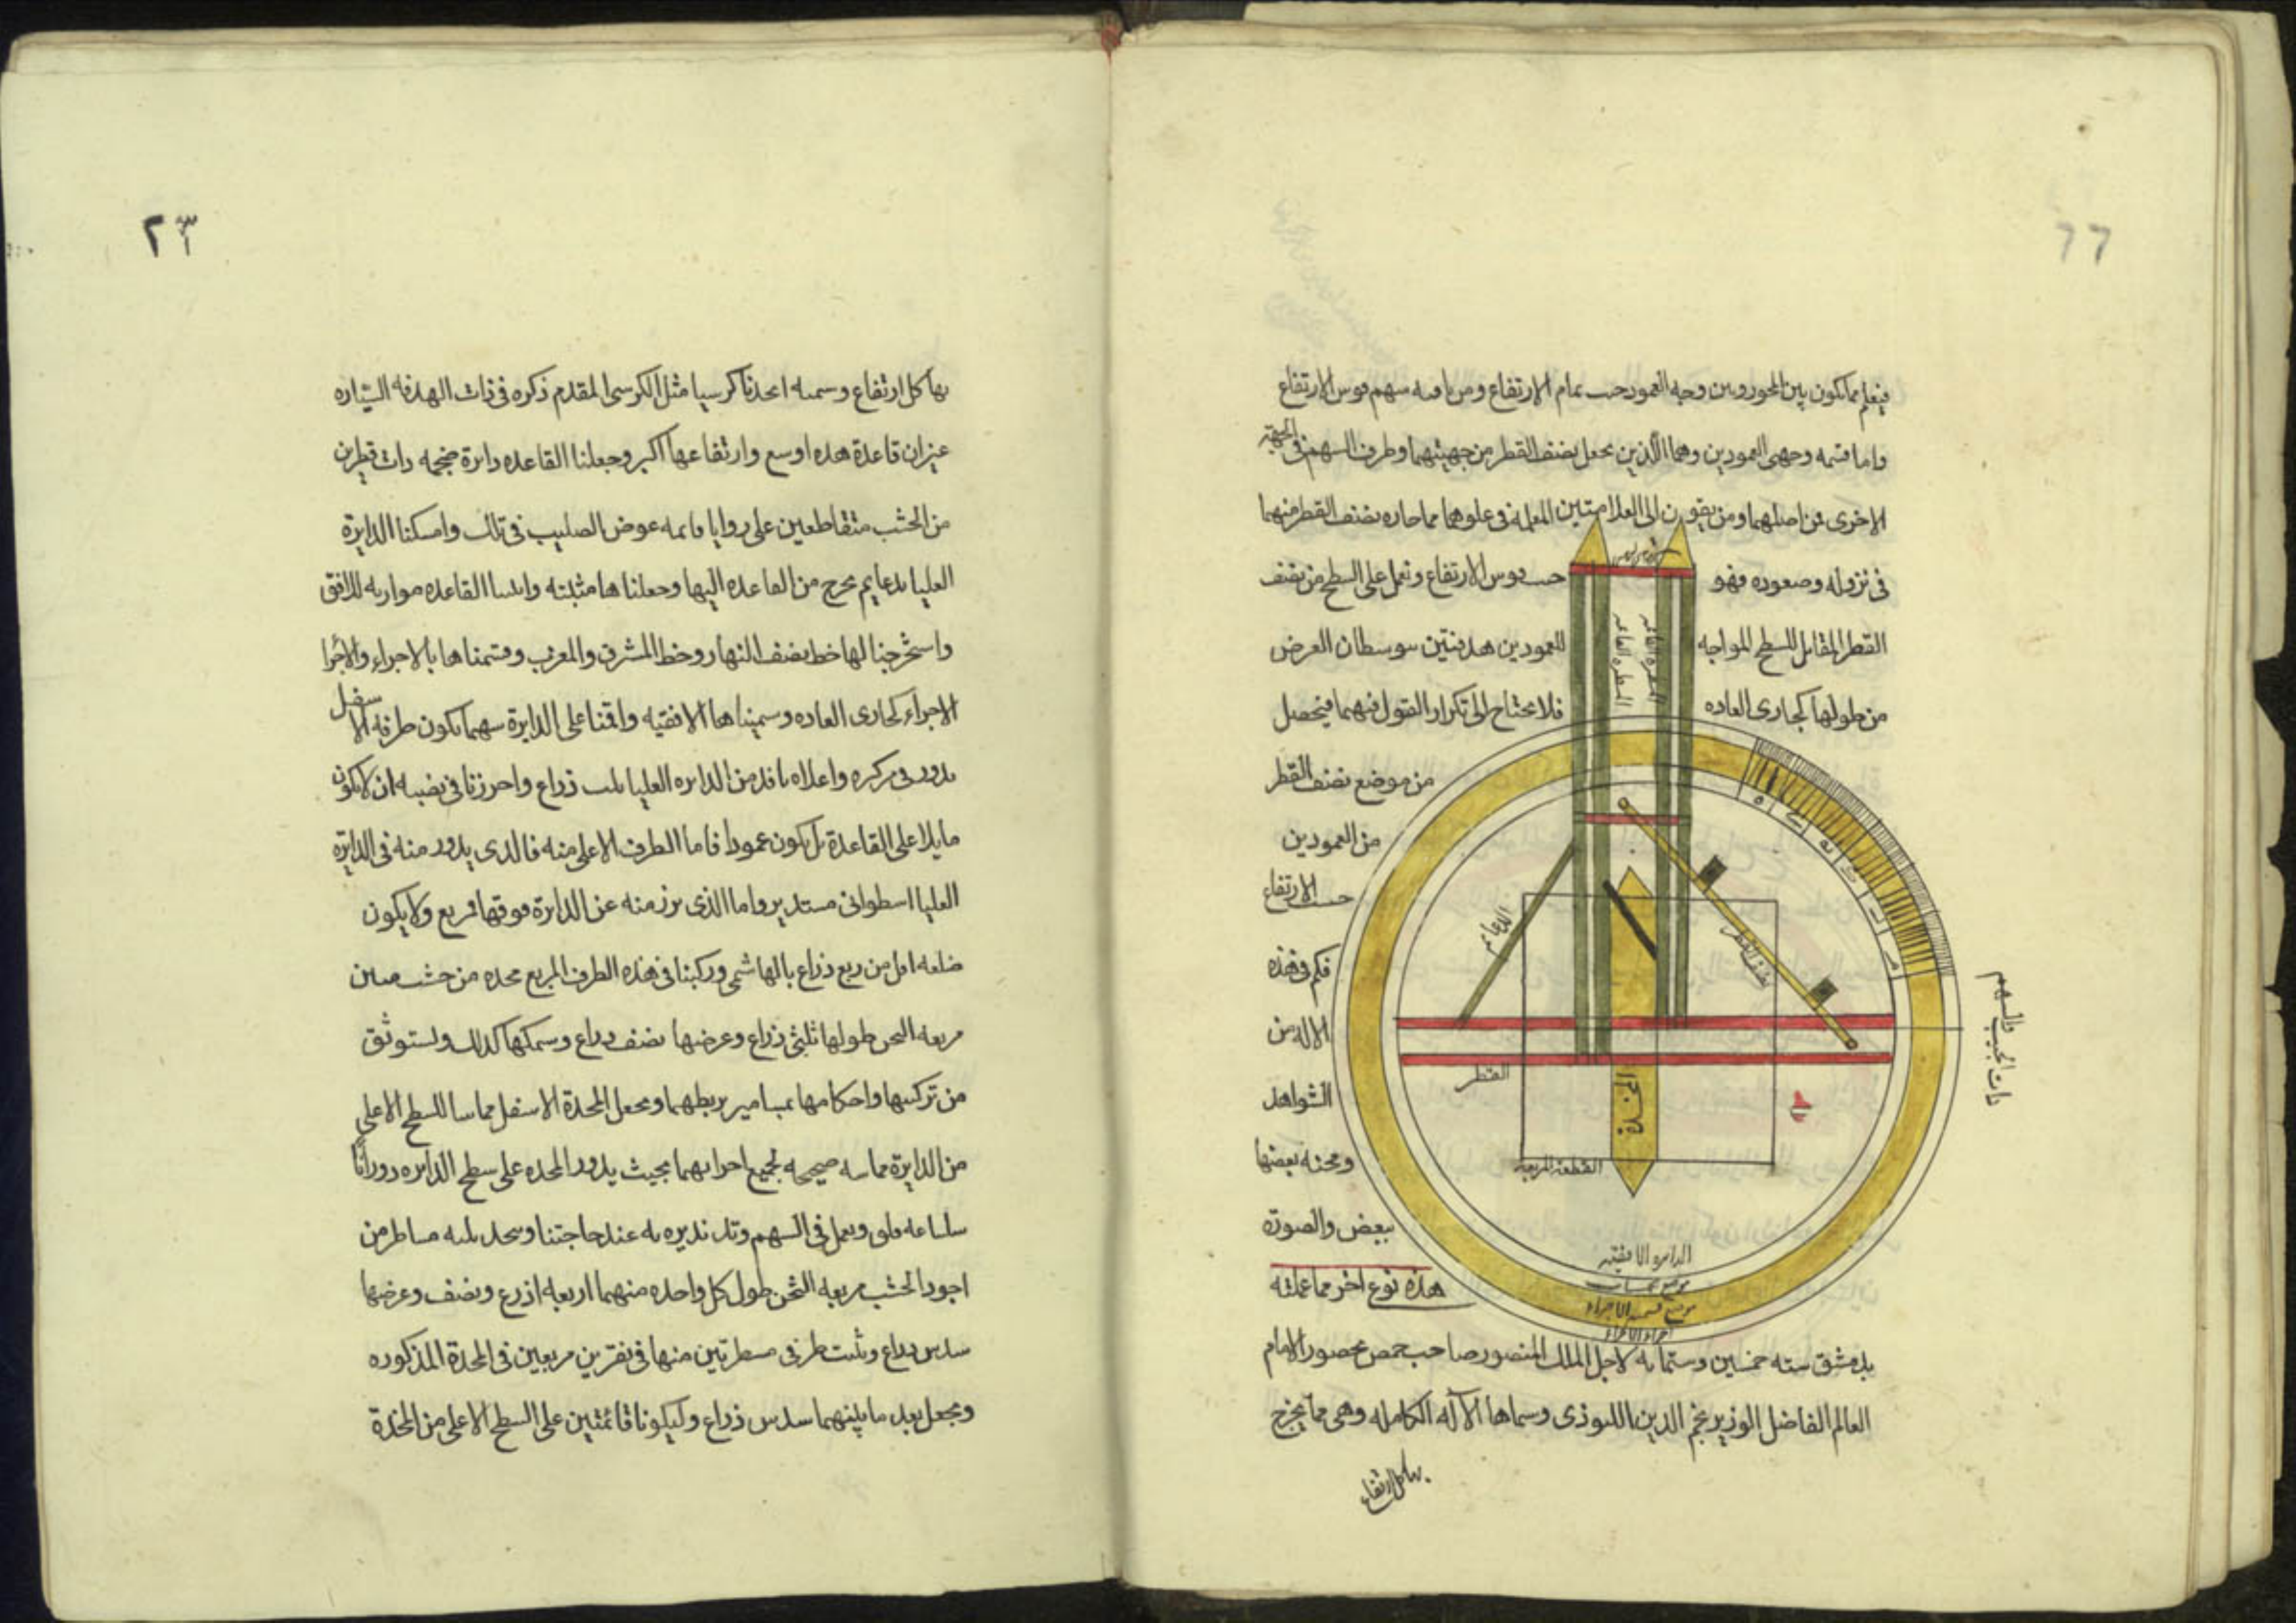 ٦٦
فيعلم مما يكون بين المحور وبين وجه العمود حب تمام الارتفاع ومن باقيه سهم قوس الارتفاع
واما قسمه وجهى العمودين وهما اللذين يحعل بضف القطر من جهيتهما وطرف السهم فى الجهة
الاخرى من اصلهما ومن يقون الى العلامتين المعلمه فى علوهما مما حاره بضف القطر منهما
فى نزوله وصعوده فهو حب قوس الارتفاع ونعمل على السطح من نصف
القطر المقابل للسطح المواجه للعمودين هدفتين سوسطان العرض
من طولها كجارى العاده فلا يحتاج الى تكرار القول فيهما فيحصل
من موضع نصف القطر
من العمودين
حب الارتفاع
فكم فى هذه
الاله من
الشواهد
ومحنه بعضها
ببعض والصورة
هذه نوع اخر مما عملته
بدمشق سنه خمسين وستمايه لاجل الملك المنصور صاحب حمص بحضور الامام
العالم الفاضل الوزير نجم الدين اللبوذى وسماها الآله الكامله وهى مما يخرج
بها كل ارتفاع
المسطرة القائمه
المسطره القائمه
الدعائم
نصف القطر
القطر
المخدة
القطعة المربعه
الدايره الافقيه
موضع قسمه الاجزاء
اجزاء الاجزاء
ذات الجيب والسهم
٢٣
بها كل ارتفاع وسمته اتخذنا كرسيا مثل الكرسى المقدم ذكره فى ذات الهدفه السياره
غير ان قاعدة هذه اوسع وارتفاعها اكبر وجعلنا القاعده دايرة ضخمه ذات قطرين
من الخشب متقاطعين على زوايا قايمه عوض الصليب فى تلك وامسكنا الدايرة
العليا بدعايم تخرج من القاعده اليها وجعلناها مثبته واثبتنا القاعده موازيه للافق
واستخرجنا لها خط نضف النهار وخط المشرق والمغرب وقسمناها بالاجزاء والاجزا
الاجزاء كجارى العاده وسميناها الافقيه واقمنا على الدايرة سهما يكون طرفه الاسفل
يدور فى مركزه واعلاه نافذ من الدايره العليا بثلث ذراع واحرزنا فى نصبه ان لا يكون
مايلا على القاعدة بل يكون عمودا فاما الطرف الاعلى منه فالذى يدور منه فى الدايرة
العليا اسطوانى مستدير واما الذى برز منه عن الدايرة فوقها فمربع ولا يكون
ضلعه اقل من ربع ذراع بالهاشمى وركبنا فى هذه الطرف المربع مخده من خشب متين
مربعه الثخن طولها ثلثى ذراع وعرضها نضف ذراع وسمكها كذلك ولستوثق
من تركيبها واحكامها بمسامير يربطهما ونجعل المخدة الاسفل مماسا للسطح الاعلى
من الدايرة مماسه صحيحه لجميع اجزايهما بحيث يدور المخده على سطح الدايره دورانا
سلسا عه قلق ويعمل فى السهم وتد نديره به عند حاجتنا ونتخذ ثلثه مساطر من
اجود الخشب مربعه الثخن طول كل واحده منهما اربعه اذرع ونضف وعرضها
سدس ذراع ونثبت طرفى مسطرتين منها فى نقرتين مربعين فى المخدة المذكوره
ونجعل بعد ما بينهما سدس ذراع وليكونا قائمتين على السطح الاعلى من المخدة